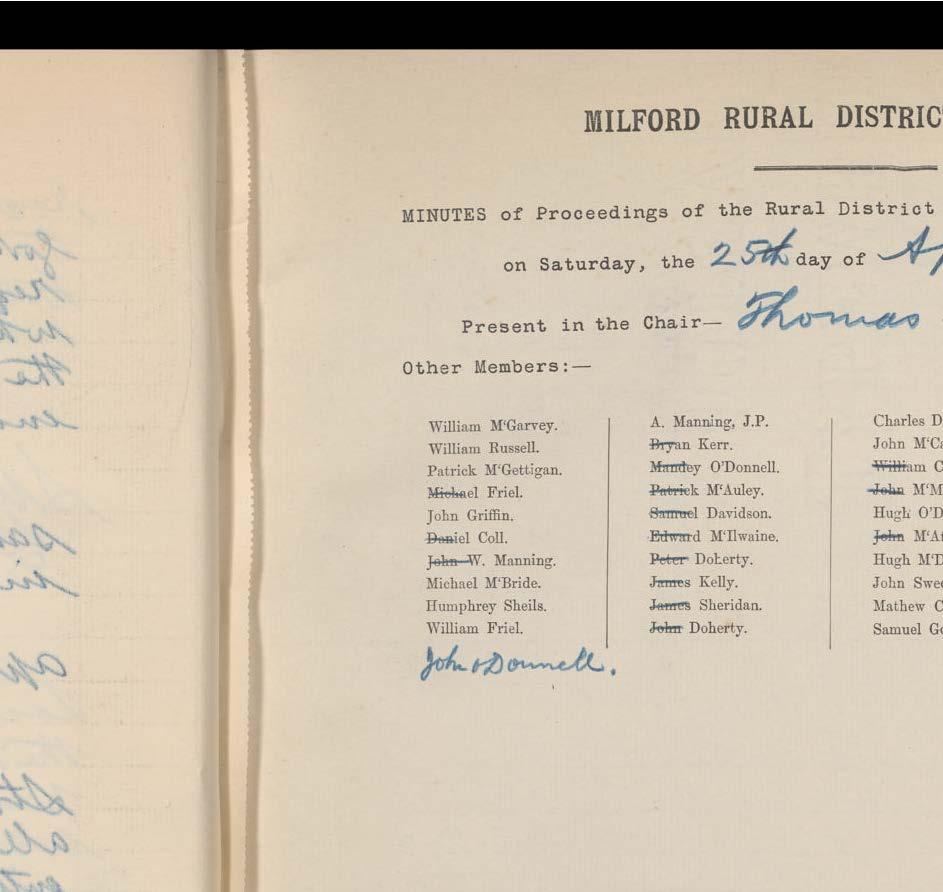 MILFORD RURAL DISTRIC
MINUTES of Proceedings of the Rural District
on Saturday, the 25th day of Ap
Present in the Chair— Thomas
Other Members:—
William M'Garvey.
William Russell.
Patrick M'Gettigan.
Michael Friel.
John Griffin.
Daniel Coll.
John W. Manning.
Michael M'Bride.
Humphrey Sheils.
William Friel.
John O'Donnell.
A. Manning, J.P.
Bryan Kerr.
Mandey O'Donnell.
Patrick M'Auley.
Samuel Davidson.
Edward M'Ilwaine.
Peter Doherty.
James Kelly.
James Sheridan.
John Doherty.
Charles D
John M'Ca
William C
John M'M
Hugh O'D
John M'At
Hugh M'D
John Swee
Mathew C
Samuel Go